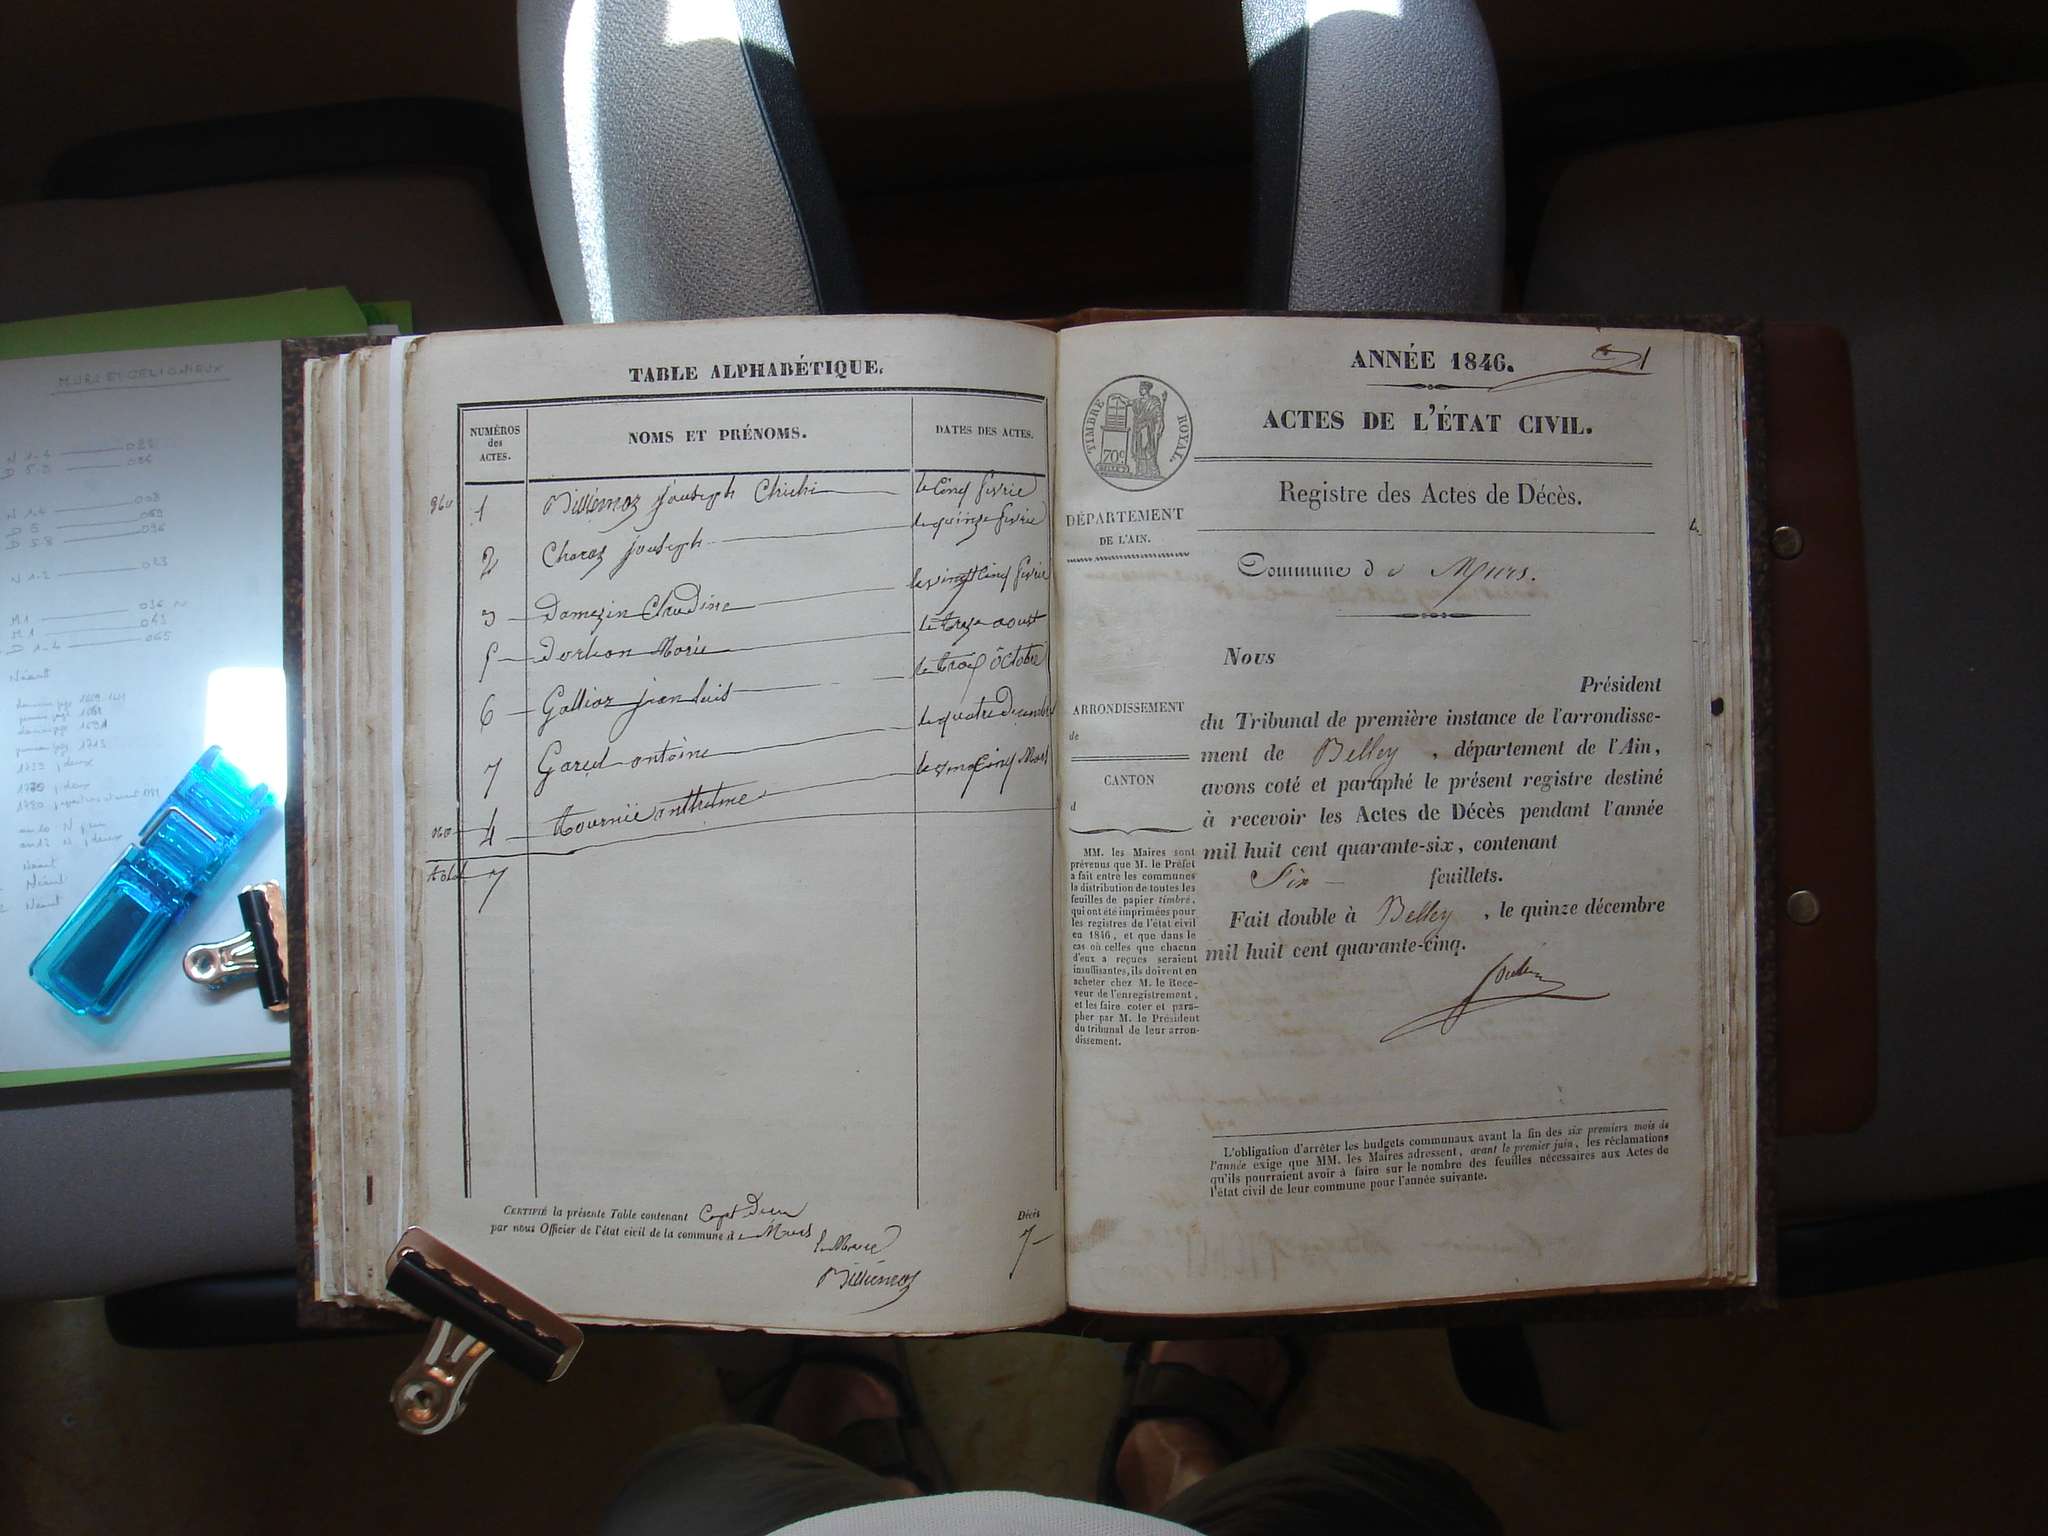 MURS ET GELIGNIEUX
Néant
TABLE ALPHABÉTIQUE.
NUMÉROS
des
ACTES.
NOMS ET PRÉNOMS.
DATES DES ACTES.
1 Billiémoz Joubseph le Cinq fevrie
2 Charoz Joubseph le quinze fevrie
3 Damezin Claudine le vingt Cinq fevrie
5 Marie le aoust
6 Gallioz jean luis le troy Octobre
7 antoine le quatre Decembre
no 4 Tournié anthelme le Cinq Mars
total 7
CERTIFIÉ la présente Table contenant Décès
par nous Officier de l'état civil de la commune d e Murs 7
le Maire
Billiémoz
ANNÉE 1846. 1
TIMBRE ROYAL.
70c
ACTES DE L'ÉTAT CIVIL.
Registre des Actes de Décès.
DÉPARTEMENT
DE L'AIN.
Commune d e Murs.
Nous
Président
du Tribunal de première instance de l'arrondisse-
ment de Belley , département de l'Ain,
avons coté et paraphé le présent registre destiné
à recevoir les Actes de Décès pendant l'année
mil huit cent quarante-six, contenant
Six feuillets.
Fait double à Belley , le quinze décembre
mil huit cent quarante-cinq.
ARRONDISSEMENT
de
CANTON
d
MM. les Maires sont
prévenus que M. le Préfet
a fait entre les communes
la distribution de toutes les
feuilles de papier timbré,
qui ont été imprimées pour
les registres de l'état civil
en 1846, et que dans le
cas où celles que chacun
d'eux a reçues seraient
insuffisantes, ils doivent en
acheter chez M. le Rece-
veur de l'enregistrement,
et les faire coter et para-
pher par M. le Président
du tribunal de leur arron-
dissement.
L'obligation d'arrêter les budgets communaux avant la fin des six premiers mois de
l'année exige que MM. les Maires adressent, avant le premier juin, les réclamations
qu'ils pourraient avoir à faire sur le nombre des feuilles nécessaires aux Actes de
l'état civil de leur commune pour l'année suivante.